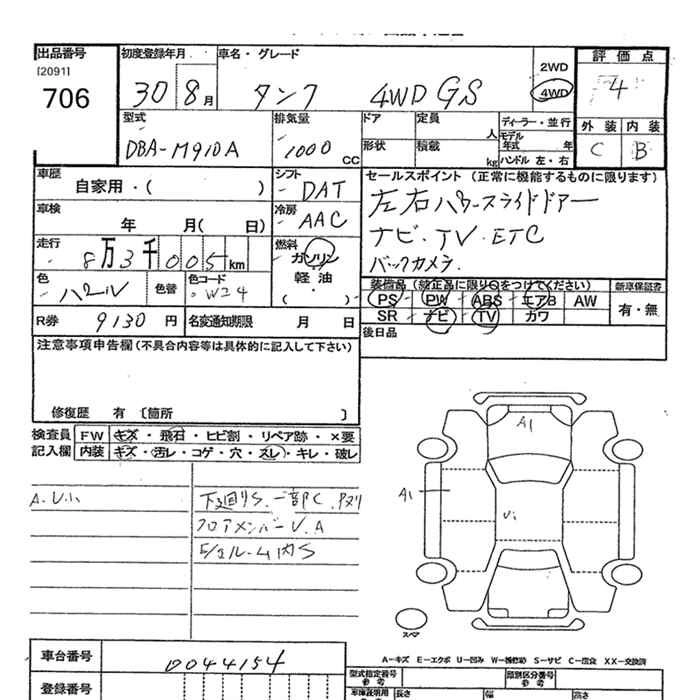 出品番号
[2091]
706
初度登録年月
30 8月
車名・グレード
タンク 4WD GS
2WD
4WD
評価点
4
外装 内装
C B
型式
DBA-M910A
排気量
1000 CC
ドア
形状
定員 人
積載 kg
ディーラー・並行
モデル年式 年
ハンドル 左・右
車歴
自家用・( )
シフト
DAT
セールスポイント (正常に機能するものに限ります)
左右パワースライドドアー
ナビ.TV.ETC
バックカメラ.
車検
年 月( 日)
冷房
AAC
走行
8万3千005km
燃料
ガソリン
軽油
( )
色
パール
色替
色コード
W24
装備品 (純正品に限り○をつけてください)
PS PW ABS エアB AW
SR ナビ TV カワ
新車保証書
有・無
R券 9130 円
名変通知期限 月 日
後日品
注意事項申告欄 (不具合内容等は具体的に記入して下さい)
修復歴 有 〔箇所 〕
検査員記入欄
FW キズ・飛石・ヒビ割・リペア跡・×要
内装 キズ・汚レ・コゲ・穴・スレ・キレ・破レ
A.U小
下廻りS.一部C.
フロアメンバーU.A
A1
A1
U
スペア
A-キズ E-エクボ U-凹み W-補修跡 S-サビ C-腐食 XX-交換済
車台番号
0044154
登録番号
型式指定番号
参考
類別区分番号
参考
長さ
幅
高さ